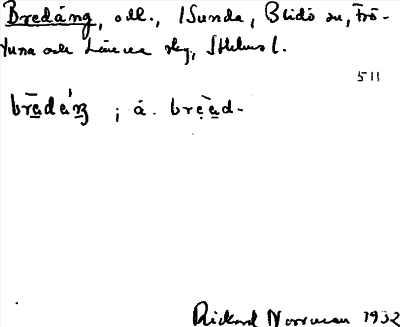 Bredäng, odl., i Sunda, Blidö sn, Frö-
tuna och Länna skg, Sthlms l.
511
brädäŋ ; ä. brèad-
Rickard Norrman 1932